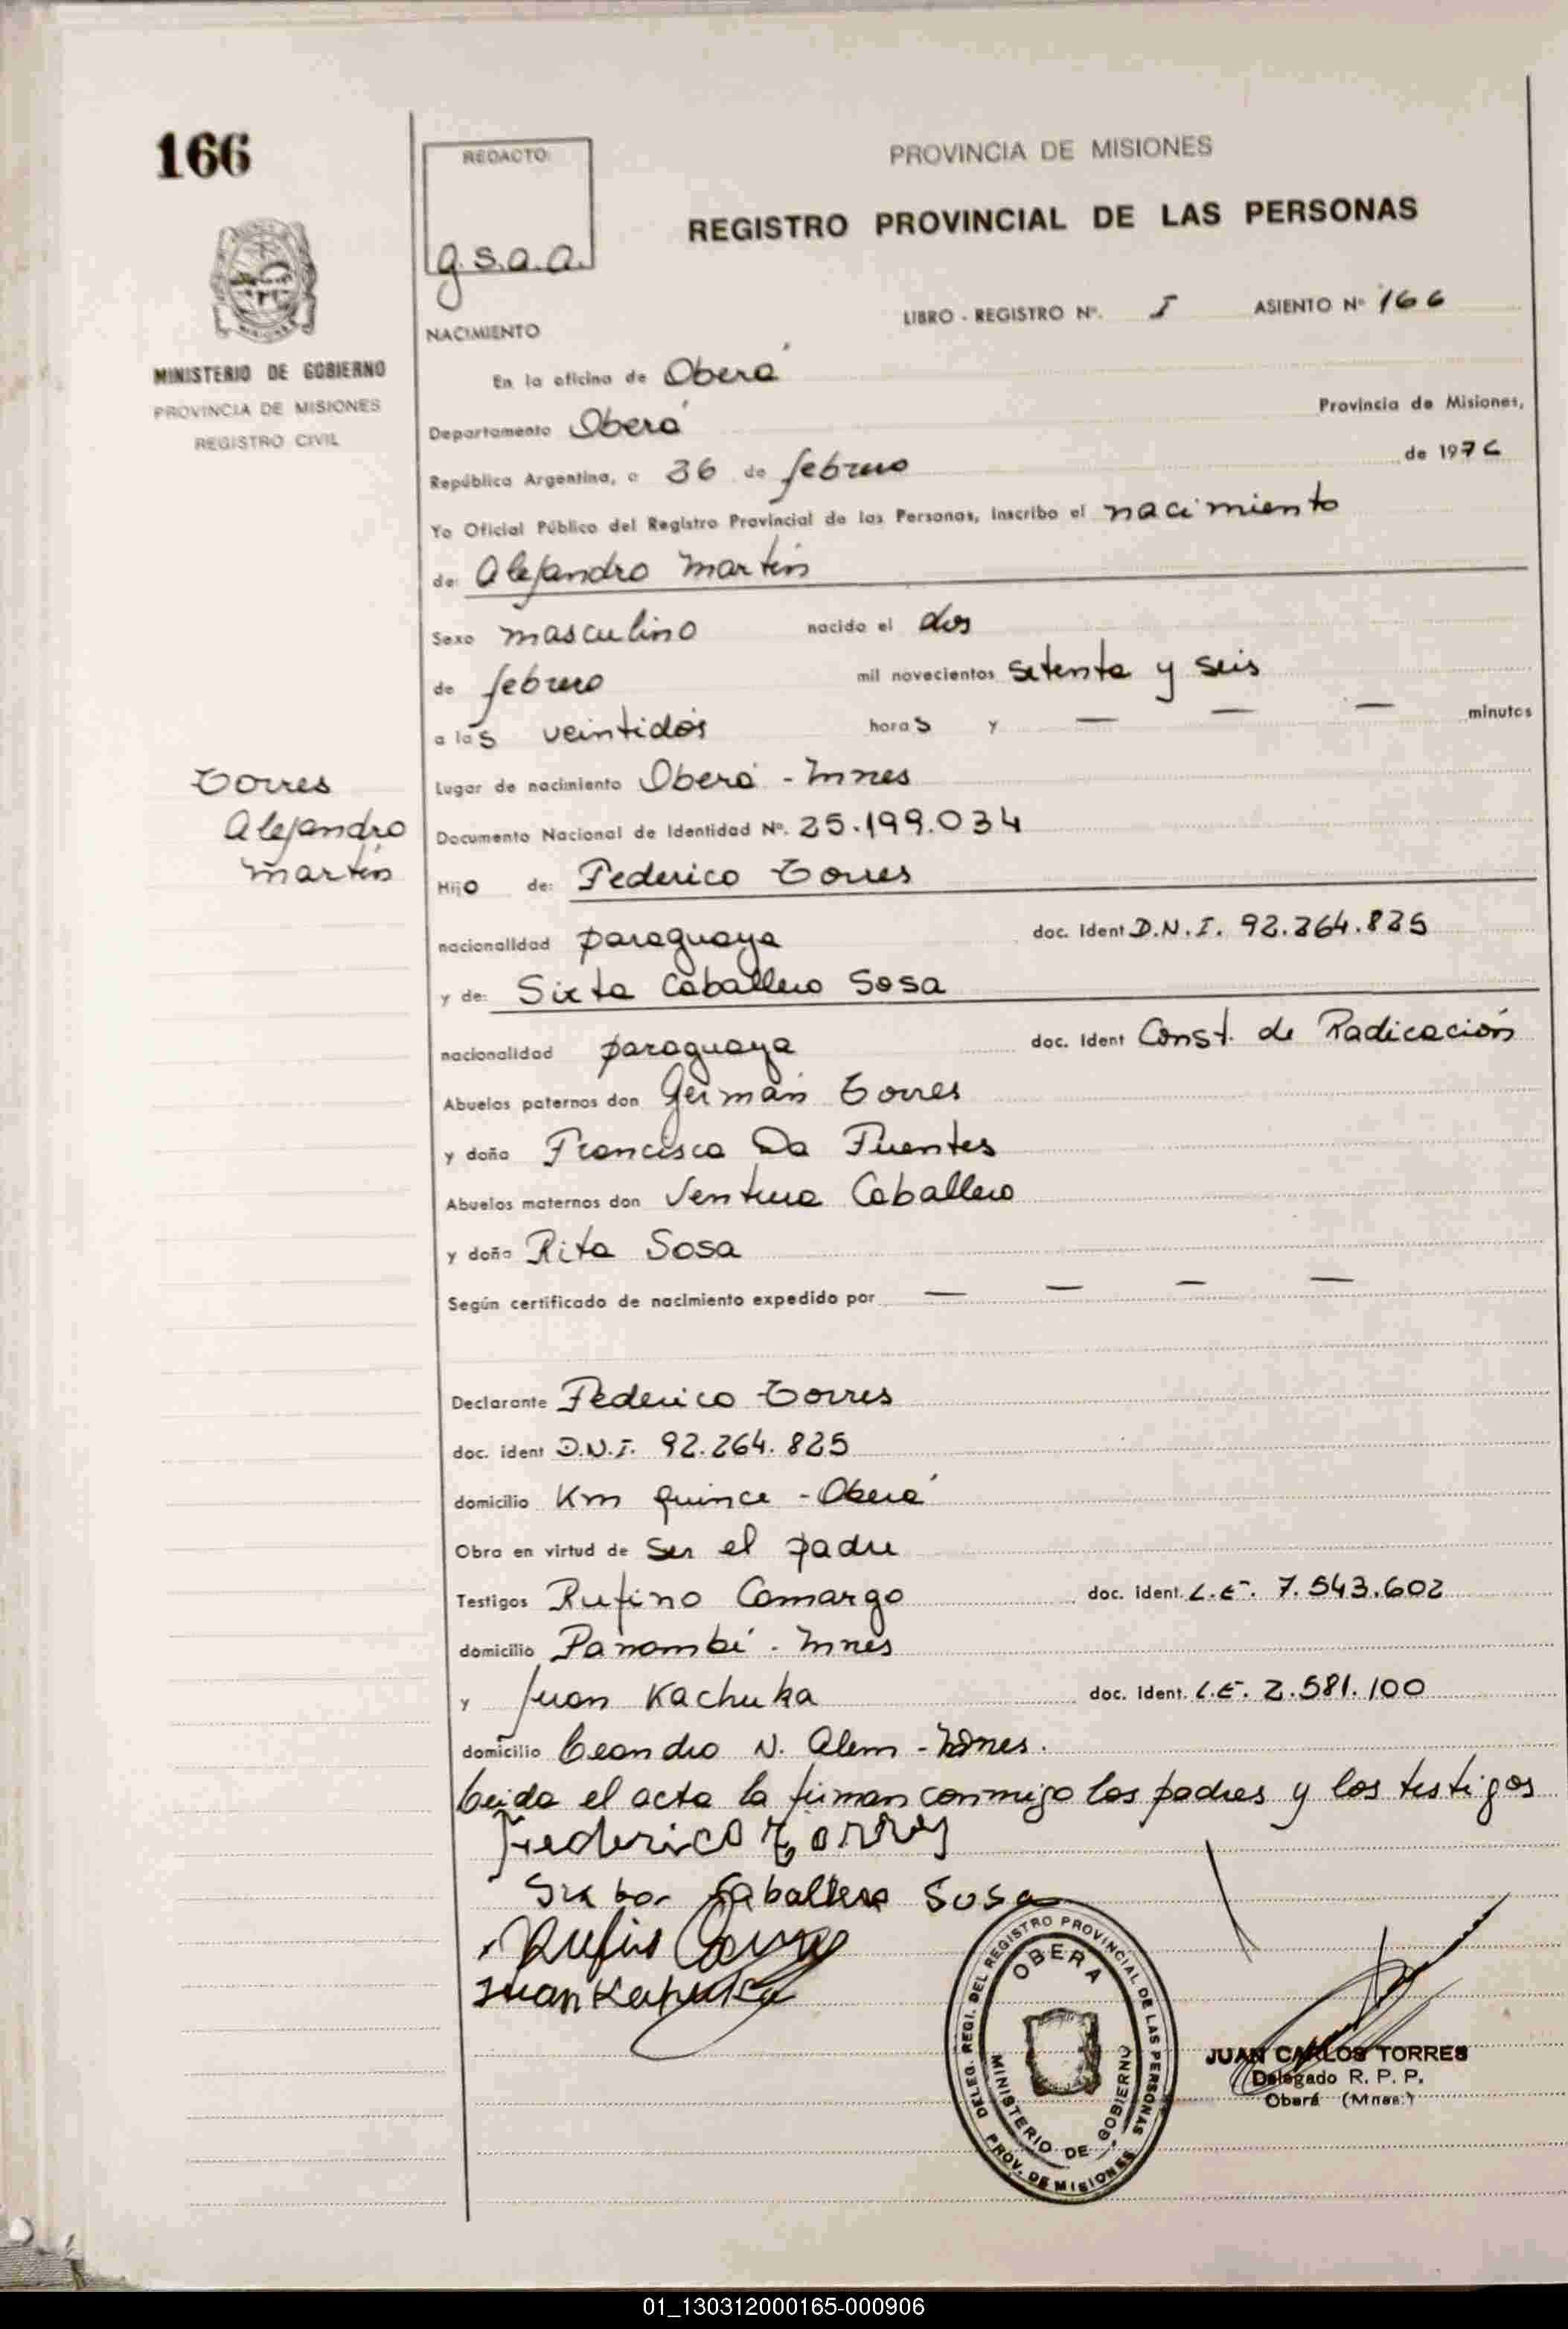 166
REDACTO:
g.s.a.a.
PROVINCIA DE MISIONES
REGISTRO PROVINCIAL DE LAS PERSONAS
LIBRO - REGISTRO Nº. I ASIENTO Nº 166
MISIONES
MINISTERIO DE GOBIERNO
PROVINCIA DE MISIONES
REGISTRO CIVIL
NACIMIENTO
En la oficina de Oberá
Departamento Oberá Provincia de Misiones,
República Argentina, a 26 de febrero de 1976
Yo Oficial Público del Registro Provincial de las Personas, inscribo el nacimiento
de: Alejandro Martín
Sexo masculino nacido el dos
de febrero mil novecientos setenta y seis
a las veintidós horas y — — — minutos
Torres
Alejandro
Martín
Lugar de nacimiento Oberá - Mnes
Documento Nacional de Identidad Nº. 25.199.034
Hijo de: Federico Torres
nacionalidad paraguaya doc. ident D.N.I. 92.264.825
y de: Sixta Caballero Sosa
nacionalidad paraguaya doc. ident Const. de Radicación
Abuelos paternos don Germán Torres
y doña Francisca Da Fuentes
Abuelos maternos don Ventura Caballero
y doña Rita Sosa
Según certificado de nacimiento expedido por — — — —
Declarante Federico Torres
doc. ident D.N.I. 92.264.825
domicilio Km quince - Oberá
Obra en virtud de ser el padre
Testigos Rufino Camargo doc. ident. L.E. 7.543.602
domicilio Panambí - Mnes
y Juan Kachuka doc. ident. L.E. 2.581.100
domicilio Leandro N. Alem - Mnes.
Leida el acta la firman conmigo los padres y los testigos
Frederico Torres
Caballero Sosa
Juan
DELEG. REGI. DEL REGISTRO PROVINCIAL DE LAS PERSONAS
OBERA
MINISTERIO DE GOBIERNO
PROV. DE MISIONES
JUAN CARLOS TORRES
Delegado R. P. P.
Oberá (Mnes.)
01_130312000165-000906